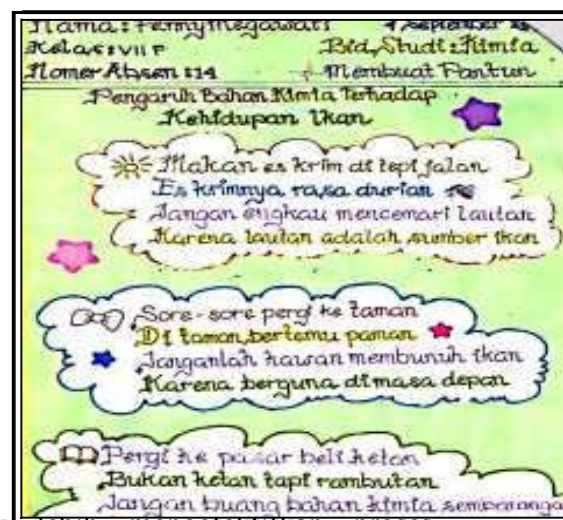 Nama : Fermy Megawati 4 September
Kelas : VII F Bid, Studi : Kimia
Nomer Absen : 14 Membuat Pantun
Pengaruh Bahan Kimia Terhadap
Kehidupan Ikan
Makan es krim di tepi jalan
Es krimnya rasa durian
Jangan engkau mencemari lautan
Karena lautan adalah sumber ikan
Sore-sore pergi ke taman
Di taman bertemu paman
Janganlah kawan membunuh ikan
Karena berguna dimasa depan
Pergi ke pasar beli ketan
Bukan ketan tapi rambutan
Jangan buang bahan kimia sembaranga